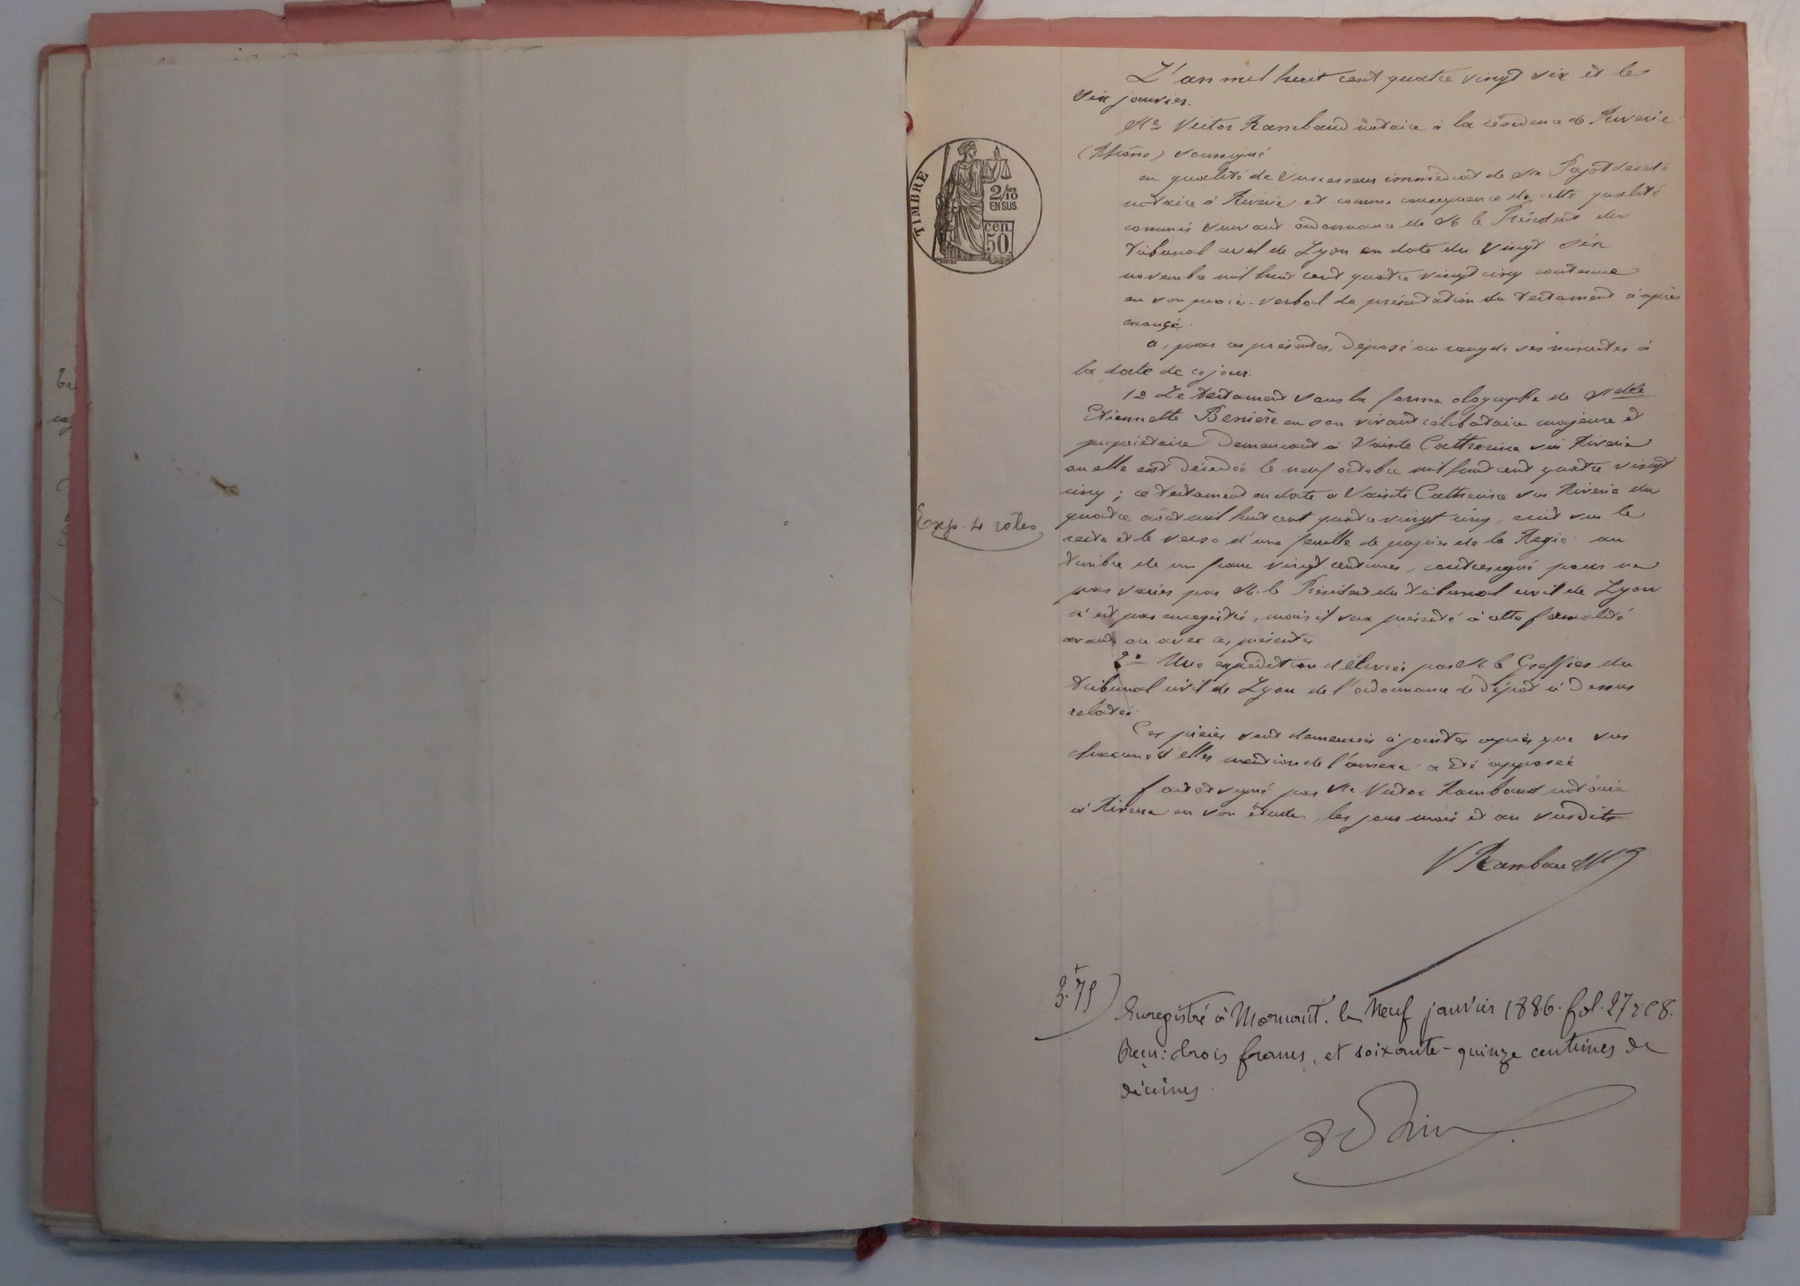 L'an mil huit cent quatre vingt six et le
six janvier.
Me Victor Rambaud notaire à la résidence de Riverie
(Rhône) soussigné
en qualité de successeur immédiat de Me Pajot décédé
notaire à Riverie et comme conséquence de cette qualité
commis suivant ordonnance de M. le Président du
Tribunal civil de Lyon en date du vingt six
novembre mil huit cent quatre vingt cinq contenue
en son procès-verbal de présentation du testament ci après
énoncé.
a, par ces présentes, déposé au rang de ses minutes à
la date de ce jour.
1o Le testament sous la forme olographe de Melle
Etiennette Besnière en son vivant célibataire majeure et
propriétaire demeurant à Sainte Catherine sur Riverie
où elle est décédée le neuf octobre mil huit cent quatre vingt
cinq; ce testament en date à Sainte Catherine sur Riverie du
quatre août mil huit cent quatre vingt cinq, écrit sur le
recto et le verso d'une feuille de papier de la Régie au
timbre de un franc vingt centimes, contresigné pour ne
pas varier par M. le Président du tribunal civil de Lyon
n'est pas enregistré, mais il sera présenté à cette formalité
avant ou avec ces présentes
2o Une expédition délivrée par M le Greffier du
tribunal civil de Lyon de l'ordonnance de dépôt ci dessus
relatée.
Ces pièces sont demeurées ci jointes après que sur
chacune d'elles mention de l'annexe a été apposée
Fait et signé par Me Victor Rambaud notaire
à Riverie en son étude, les jour mois et an susdits
V Rambaud
TIMBRE
2/10
EN SUS
cen.
50
Exp. 4 rôles
3.75
Enregistré à Mornant. le Neuf janvier 1886. fol. 27 r c 8.
Reçu: trois francs, et soixante-quinze centimes de
décimes.